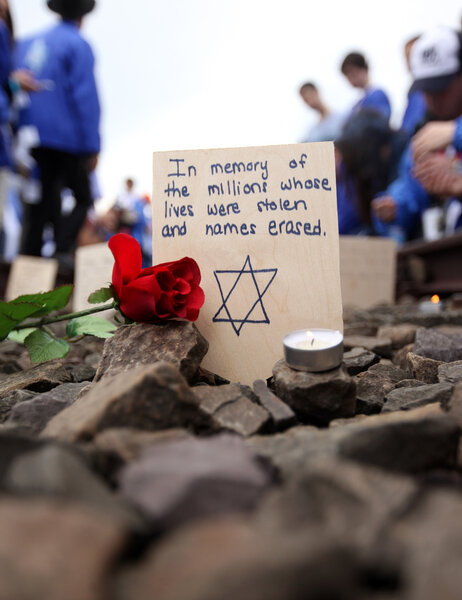 In memory of
the millions whose
lives were stolen
and names erased.